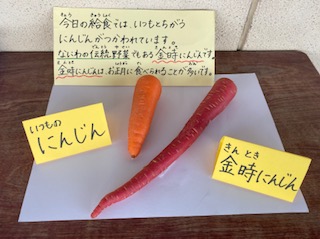 今日の給食では、いつもとちがう
にんじんがつかわれています。
なにわの伝統野菜でもある金時にんじんです。
金時にんじんは、お正月に食べられることが多いです。
いつもの
にんじん
きん とき
金時にんじん